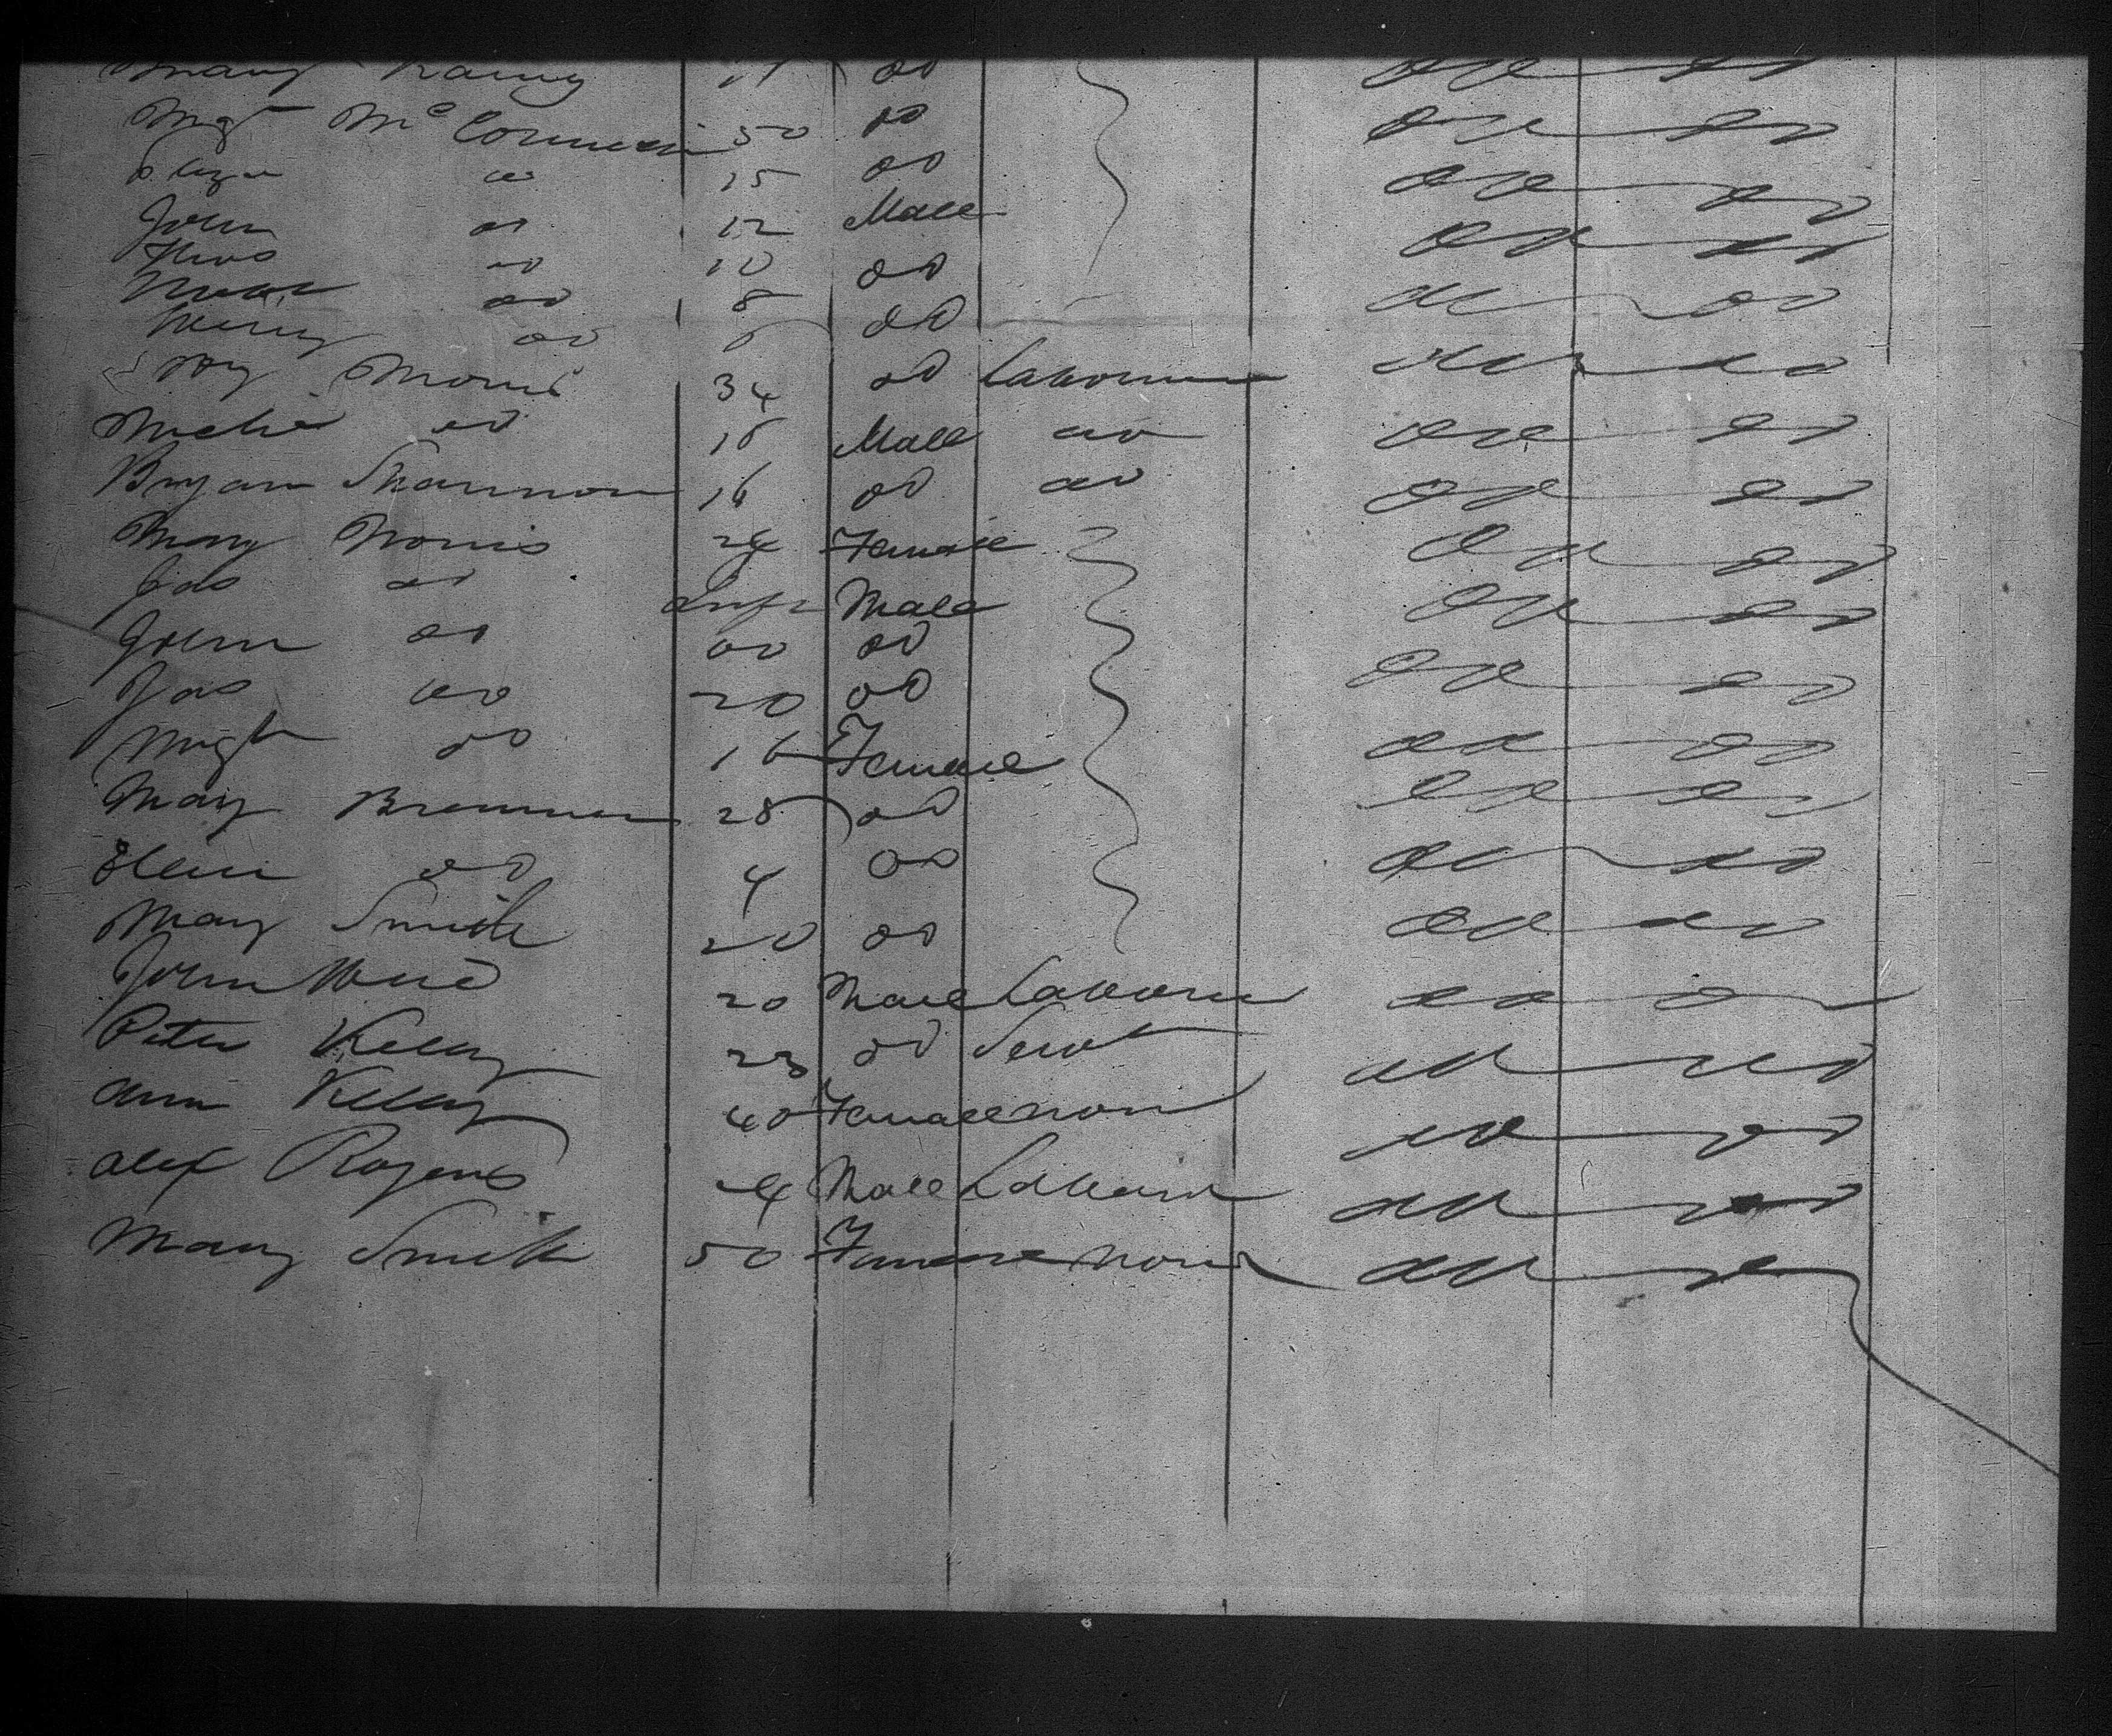 Mary
Mgt McCormick 50 do do do
do 15 do do do
John do 12 Male do do
Thos do 10 do do do
do 8 do do do
Henry do do do do
34 do Labourer do do
Michl do 18 Male do do do
Bryan Shannon 16 do do do do
Mary Norris 24 Female do do
Jas do Inft Male do do
John do do do do do
Jas do 20 do do do
Mgt do 16 Female do do
Mary Brennan 28 do do do
Ellen do 4 do do do
Mary Smith 20 do do do
John 20 Male Labourer do do
Peter Kelly 23 do Servt do do
Ann Kelly 40 Female none do do
Alex Rogers 24 Male Labourer do do
Mary Smith 50 Female none do do